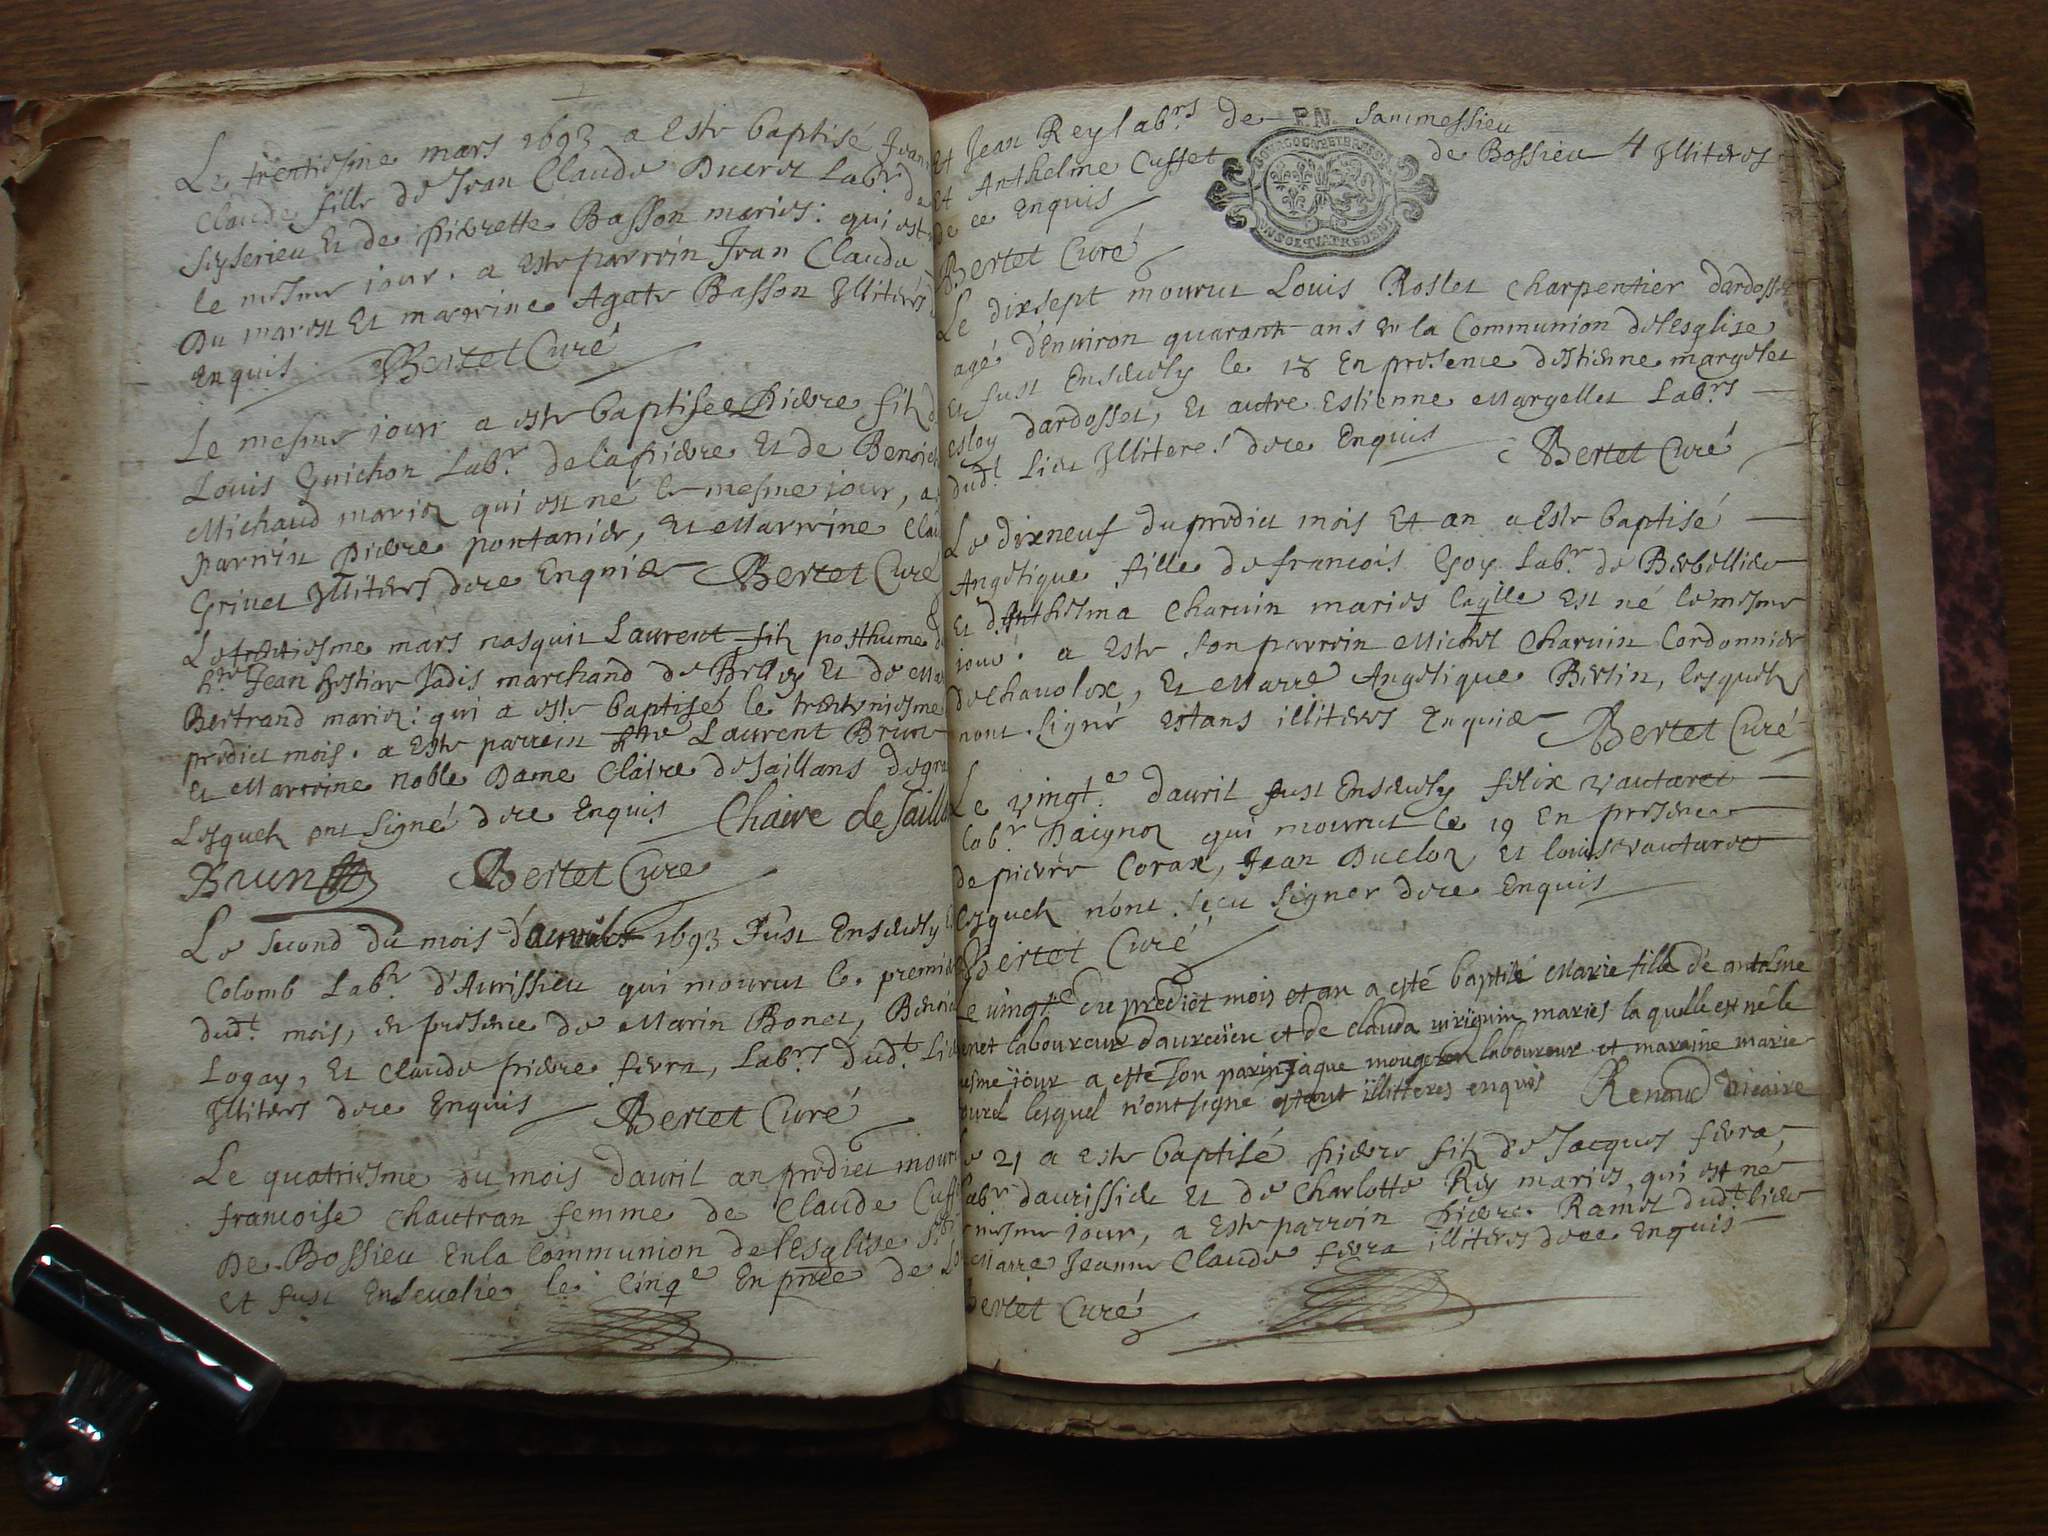 Le trentiesme mars 1693 a Este baptisé Jean
Claude fille de Jean Claude Ducret Labr. de
Seyserieu Et de pierrette Basson mariés: qui est
le mesme jour. a Este parrein Jean Claude
Du marest Et marreine Agate Basson Illiteres
Enquis Bertet Curé
Le mesme jour a este baptisee Pierre fils
Louis Guichon Labr. de la pierre Et de Benoiste
Michaud mariez qui est né le mesme jour, a
Parrein pierre pontanier, Et Marreine Clau
Grivet Illiteres de ce Enquis Bertet Curé
Le trentiesme mars nasquit Laurent fils posthume
hre. Jean hostiar Jadis marchand de Belley Et de
Bertrand mariez: qui a este baptisé le
predict mois. a Este parrein Laurent Brun
Et Marreine noble Dame Claire de Jaillans
Lesquels ont signé de ce Enquis Claire de Jaill
Brun Bertet Curé
Le second du mois d'avril 1693 Fust Ensevely
Colomb Labr. d'Avrissieu qui mourut le premier
dudt. mois, en presence de Marin Bonet, Benoist
Logay, Et Claude pierre fevra, Labrs dudt. Lieu
Illiteres de ce Enquis Bertet Curé
Le quatriesme du mois davril an predict mour
francoise Chautran femme de Claude Cuss
De Bossieu En la Communion de l'Esglise
Et fust Ensevelie le cinqe En pnce de
Et Jean Rey labrs de P.N. Sanmessieu
Et Anthelme Cusset de Bossieu 4 Illiteres
de ce Enquis
Bertet Curé
Le dixsept mourut Louis Roslet Charpentier dardosset
agé d'Environ quarante ans En la Communion de l'esglise
Et fust Ensevely le 18 En presence d'estienne margelet
dardosset, Et autre Estienne Margellet Labrs
dudt. Lieu Illiteres de ce Enquis Bertet Curé
Le dixneuf du predict mois Et an a Este baptisé
Angelique fille de francois Goy Labr. de Berbellieu
Et d'Anthelma Charvin mariés laqlle Est né le mesme
jour. a Este son parrein Michel Charvin Cordonnier
de Chavolex, Et Marre Angelique Bertin, lesquels
nont signé Estans illiteres Enquis Bertet Curé
Le vingt.e davril fust Ensevely felix vautaret
labr. qui mourut le 19 En presence
de pierre Corax, Jean Ducloz Et louis vautaret
lesquels n'ont sceu signer de ce Enquis
Bertet Curé
le vingt.e du predict mois et an a esté baptisé Marie fille de antelme
net laboureur d'avrecieu et de clauda viriquin mariés la quelle est né le
mesme jour a esté son parin jaque mougeon laboureur et maraine marie
lesquel n'ont signe etant illitteres enquis Renaud vicaire
Le 21 a Este baptisé pierre fils de Jacques fevra,
labr. davrissieu Et de Charlotte Rey mariés, qui est né
mesme jour, a Este parrein pierre Ramel dudt. lieu
Marre Jeanne Claude fevra illiteres de ce Enquis
Bertet Curé